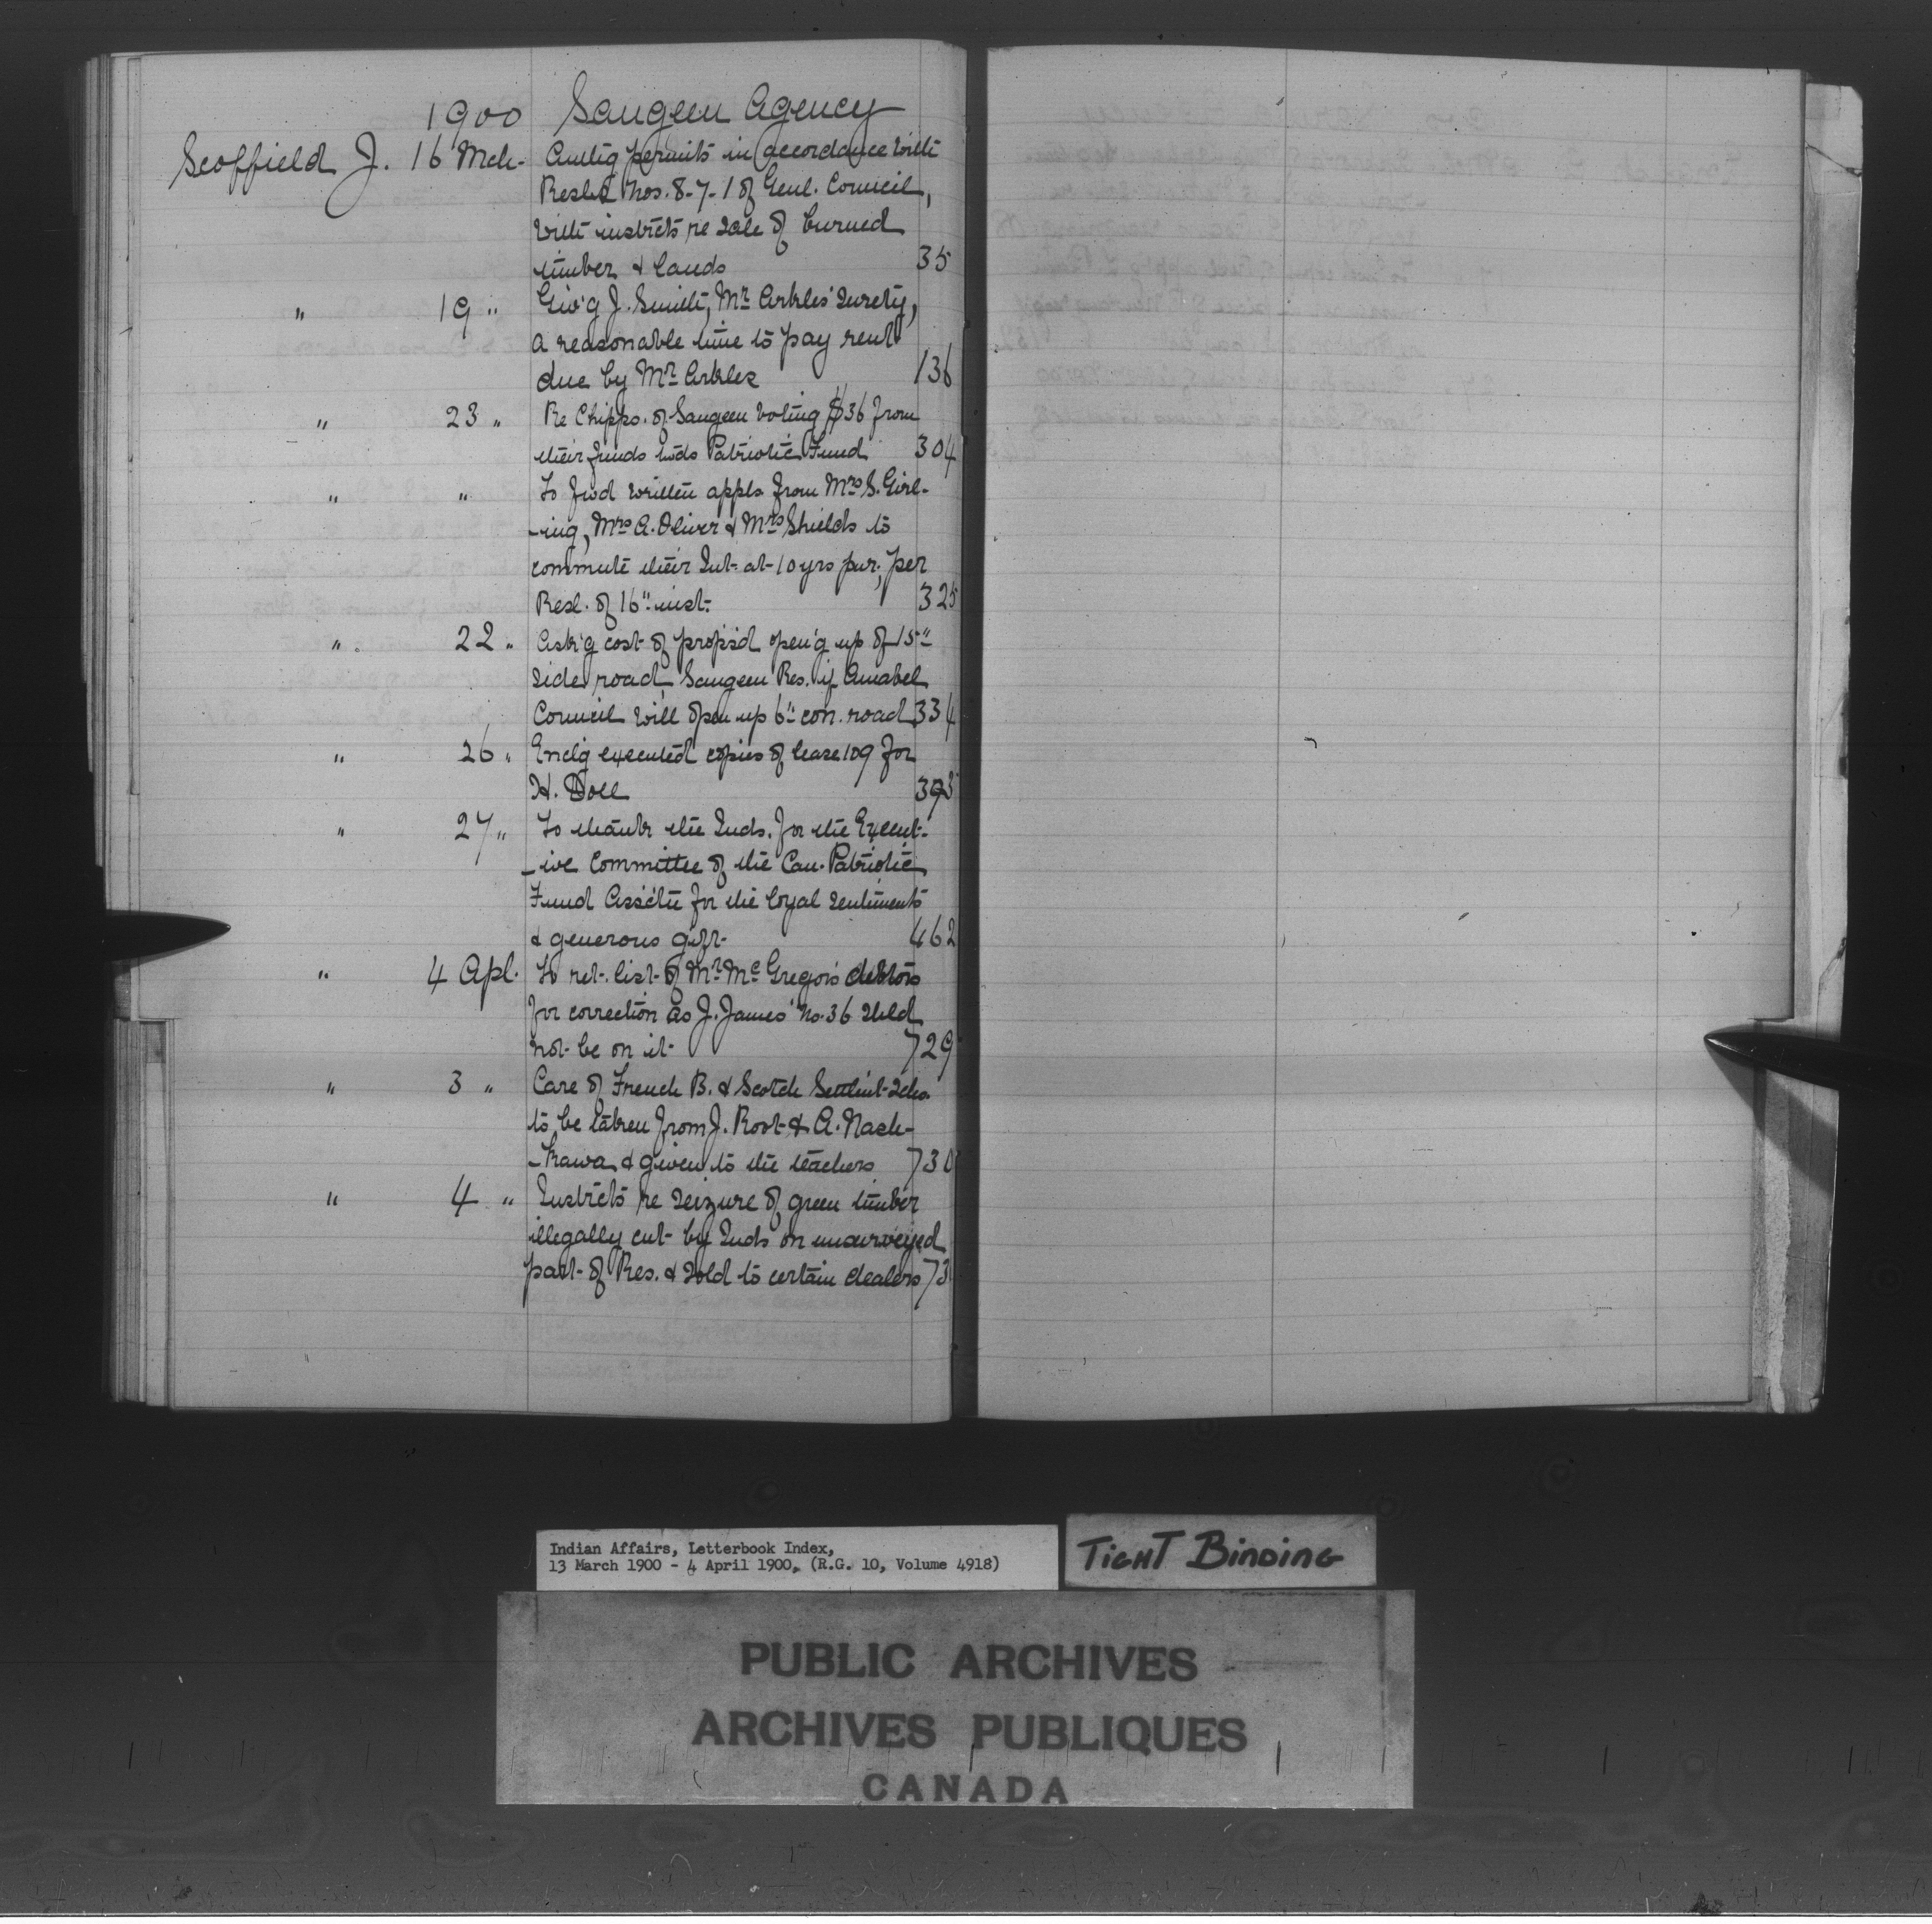 1900 Saugeen Agency
Scoffield J. 16 Mch. Authg permits in accordance with
Resls Nos. 8-7-1 of Genl. Council,
with instrcts re sale of burned
timber & lands 35
" 19 " Giv'g J. Smith, Mr Arkles' surety,
a reasonable time to pay rent
due by Mr Arkles 136
" 23 " Re Chipps. of Saugeen voting $36 from
their funds twds Patriotic Fund 304
" " To fwd written appls from Mrs S. Girl-
-ing, Mrs A. Oliver & Mrs Shields to
commute their Int. at 10 yrs pur., per
Resl. of 16" inst. 325
" 22 " Ask'g cost of props'd open'g up of 15"
side road, Saugeen Res. if Amabel
Council will open up 6" con. road 334
" 26 " Enclg executed copies of lease 109 for
H. Doll
" 27 " To thank the Inds. for the Execut-
-ive Committee of the Can. Patriotic
Fund Ass'ctn for the loyal sentiments
& generous gift 462
" 4 Apl. To ret. list of Mr McGregor's debtors
for correction as J. James' No. 36 shld
not be on it 729
" 3 " Care of French B. & Scotch Settlmt Schs.
to be taken from J. Root & A. Nash-
-kawa & given to the teachers 730
" 4 " Instrcts re seizure of green timber
illegally cut by Inds on unsurveyed
part of Res. & sold to certain dealers 73
Indian Affairs, Letterbook Index,
13 March 1900 - 4 April 1900, (R.G. 10, Volume 4918)
TIGHT BINDING
PUBLIC ARCHIVES
ARCHIVES PUBLIQUES
CANADA